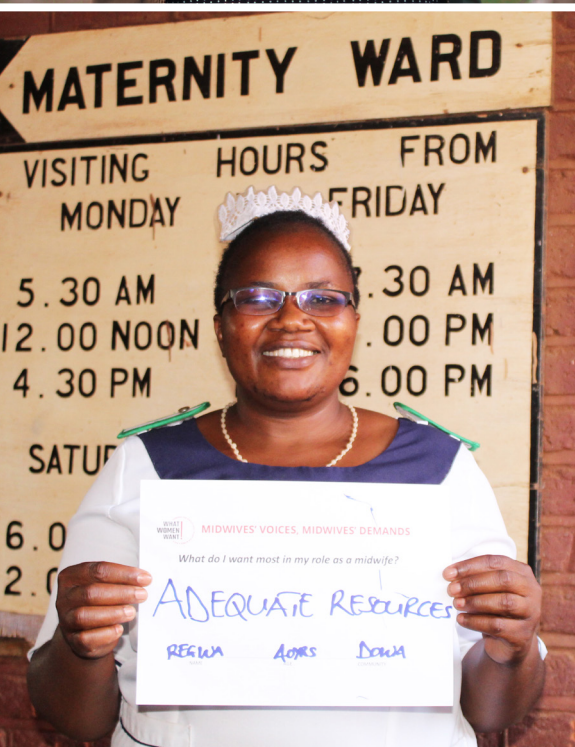 MATERNITY WARD
VISITING HOURS FROM
MONDAY FRIDAY
5.30 AM .30 AM
12.00 NOON .00 PM
4.30 PM 6.00 PM
SATU
6.0
2.0
WHAT WOMEN WANT
MIDWIVES' VOICES, MIDWIVES' DEMANDS
What do I want most in my role as a midwife?
ADEQUATE RESOURCES
REGINA 40YRS DOWA